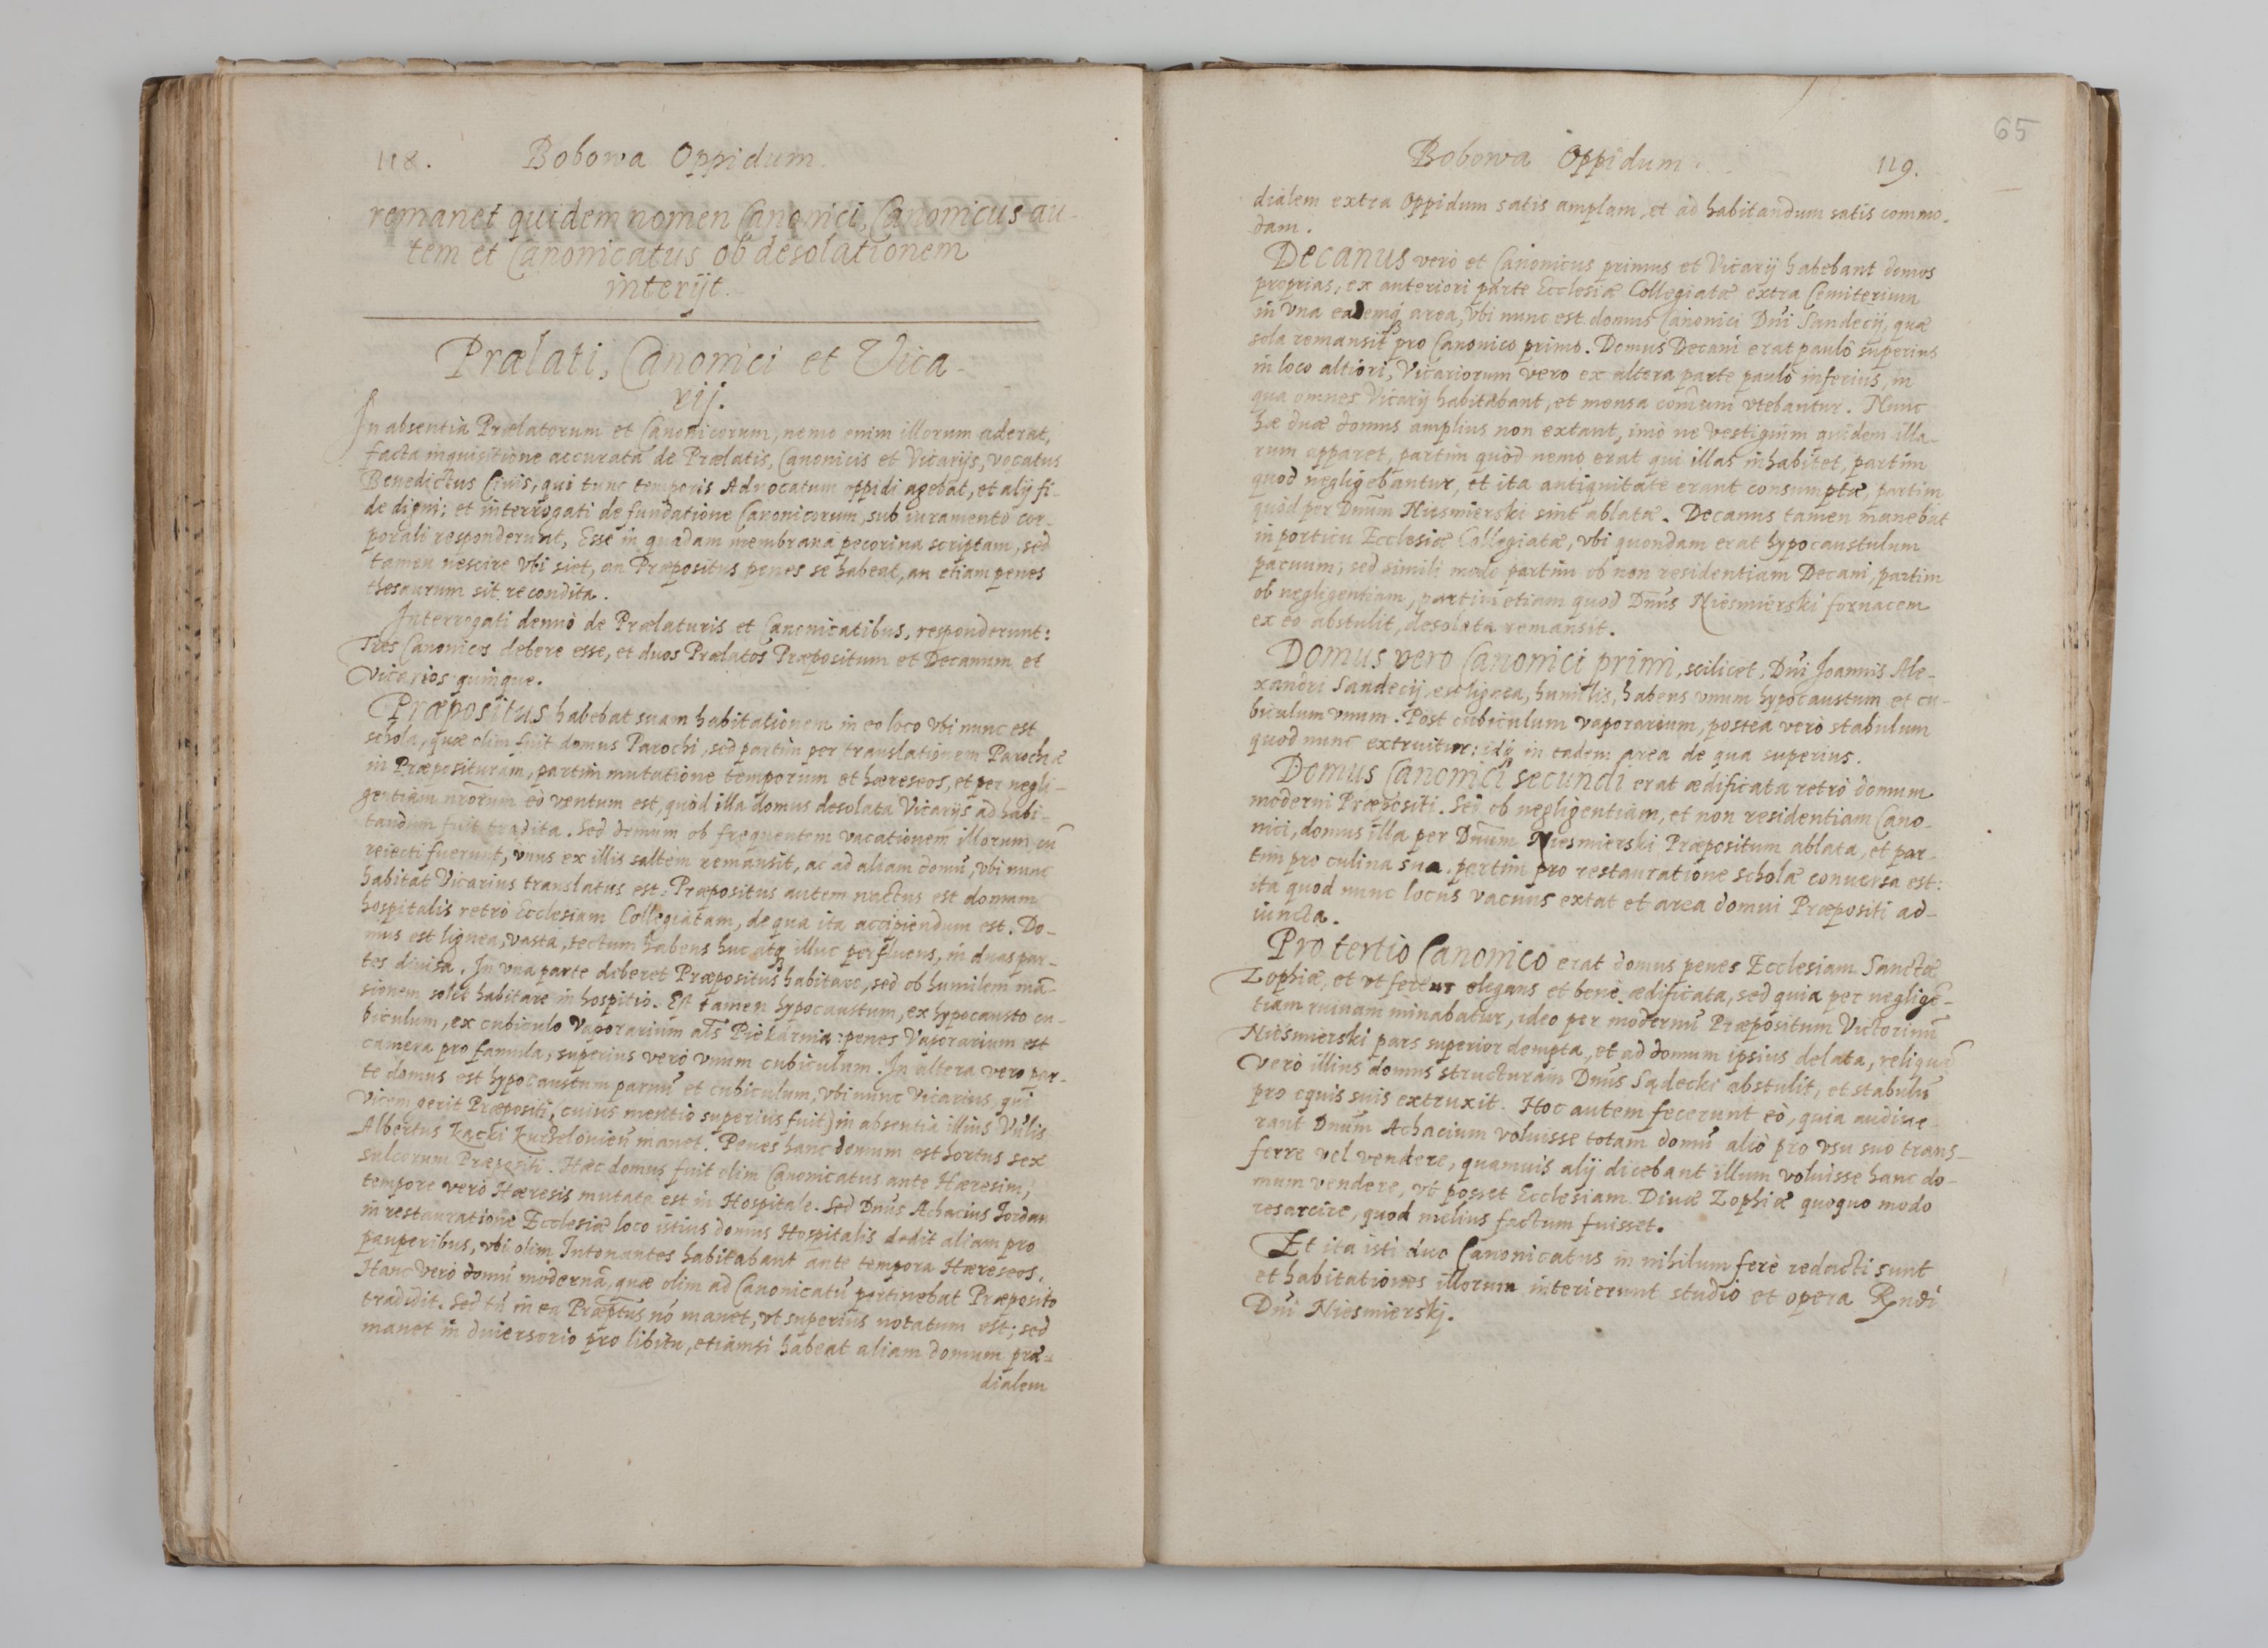 118. Bobowa Oppidum.
remanet quidem nomen Canonici, Canonicus au-
tem et Canonicatus ob desolationem
interijt.
Prælati, Canonici et Vica-
rij.
In absentia Prælatorum et Canonicorum, nemo enim illorum aderat,
facta inquisitione accurata de Prælatis, Canonicis et Vicarijs, vocatus
Benedictus Ciuis, qui tunc temporis Aduocatum oppidi agebat, et alij fi-
de digni; et interrogati de fundatione Canonicorum, sub iuramento cor-
porali responderunt, Esse in quadam membrana pecorina scriptam, sed
tamen nescire vbi siet, an Præpositus penes se habeat, an etiam penes
thesaurum sit recondita.
Interrogati denuò de Prælaturis et Canonicatibus, responderunt:
Tres Canonicos debere esse, et duos Prælatos Præpositum et Decanum et
Vicarios quinque.
Præpositus habebat suam habitationem in eo loco vbi nunc est
schola, quæ olim fuit domus Parochi, sed partim per translationem Parochiæ
in Præposituram, partim mutatione temporum et hæreseos, et per negli-
gentiam nrorum eò ventum est, quòd illa domus desolata Vicarijs ad habi-
tandum fuit tradita. Sed demum ob frequentem vacationem illorum cũ
reiecti fuerunt, vnus ex illis saltem remansit, ac ad aliam domũ, vbi nunc
habitat Vicarius translatus est. Præpositus autem nactus est domum
hospitalis retrò Ecclesiam Collegiatam, de qua ita accipiendum est. Do-
mus est lignea, vasta, tectum habens huc atq̃ illuc perfluens, in duas par-
tes diuisa. In vna parte deberet Præpositus habitare, sed ob humilem mã-
sionem solet habitare in hospitio. Est tamen hypocaustum, ex hypocausto cu-
biculum, ex cubiculo Vaporarium als Piekarnia: penes Vaporarium est
camera pro famula, superius verò vnum cubiculum. In altera vero par-
te domus est hypocaustum paruũ et cubiculum, vbi nunc Vicarius, qui
vicem gerit Præpositi (cuius mentio superius fuit) in absentia illius Vulis
Albertus Kącki manet. Penes hanc domum est hortus sex
sulcorum Præpositi. Hæc domus fuit olim Canonicatus ante Hæresim,
tempore verò Hæresis mutata est in Hospitale. Sed Dnũs Achacius Jordan
in restauratione Ecclesiæ loco istius domus Hospitalis dedit aliam pro
pauperibus, vbi olim Intonantes habitabant ante tempora Hæreseos.
Hanc verò domũ modernã, quæ olim ad Canonicatũ pertinebat Præposito
tradidit. Sed tñ in ea Præptus nõ manet, vt superius notatum est; sed
manet in diuersorio pro libitu, etiamsi habeat aliam domum præ-
dialem
65
Bobowa Oppidum. 119.
dialem extra Oppidum satis amplam, et ad habitandum satis commo-
dam.
Decanus verò et Canonicus primus et Vicarij habebant domos
proprias, ex anteriori parte Ecclesiæ Collegiatæ extra Cemiterium
in vna eademq̃ area, vbi nunc est domus Canonici Dni Sandecij, quæ
sola remansit pro Canonico primo. Domus Decani erat paulò superius
in loco altiori, Vicariorum vero ex altera parte paulò inferius, in
qua omnes Vicarij habitabant, et mensa comuni vtebantur. Nunc
hæ duæ domus amplius non extant, imò ne vestigium quidem illa-
rum apparet, partim quòd nemo erat qui illas inhabitet, partim
quod negligebantur, et ita antiquitate erant consumptæ, partim
quòd per Dnum Niesmierski sint ablatæ. Decanus tamen manebat
in porticu Ecclesiæ Collegiatæ, vbi quondam erat hypocaustulum
paruum; sed simili modo partim ob non residentiam Decani, partim
ob negligentiam, partim etiam quod Dnus Niesmierski fornacem
ex eo abstulit, desolata remansit.
Domus vero Canonici primi, scilicet, Dni Joannis Ale-
xandri Sandecij est lignea, humilis, habens vnum hypocaustum et cu-
biculum vnum. Post cubiculum vaporarium, postea verò stabulum
quod nunc extruitur: idq̃ in eadem area de qua superius.
Domus Canonici secundi erat ædificata retrò domum
moderni Præpositi. Sed ob negligentiam, et non residentiam Cano-
nici, domus illa per Dnum Niesmierski Præpositum ablata, et par-
tim pro culina sua, partim pro restauratione scholæ conuersa est:
ita quod nunc locus vacuus extat et area domui Præpositi ad-
iuncta.
Pro tertio Canonico erat domus penes Ecclesiam Sanctæ
Zophiæ, et vt fertur elegans et benè ædificata, sed quia per negligẽ-
tiam ruinam minabatur, ideo per modernũ Præpositum Victorinũ
Niesmierski pars superior dempta, et ad domum ipsius delata, reliquã
verò illius domus structuram Dnus Sądecki abstulit, et stabulũ
pro equis suis extruxit. Hoc autem fecerunt eò, quia audiue-
rant Dnum Achacium voluisse totam domũ aliò pro vsu suo trans-
ferre vel vendere, quamuis alij dicebant illum voluisse hanc do-
mum vendere, vt posset Ecclesiam Diuæ Zophiæ quoquo modo
resarcire, quod melius factum fuisset.
Et ita isti duo Canonicatus in nihilum ferè redacti sunt
et habitationes illorum interierunt studio et opera Rndi
Dni Niesmierskj.